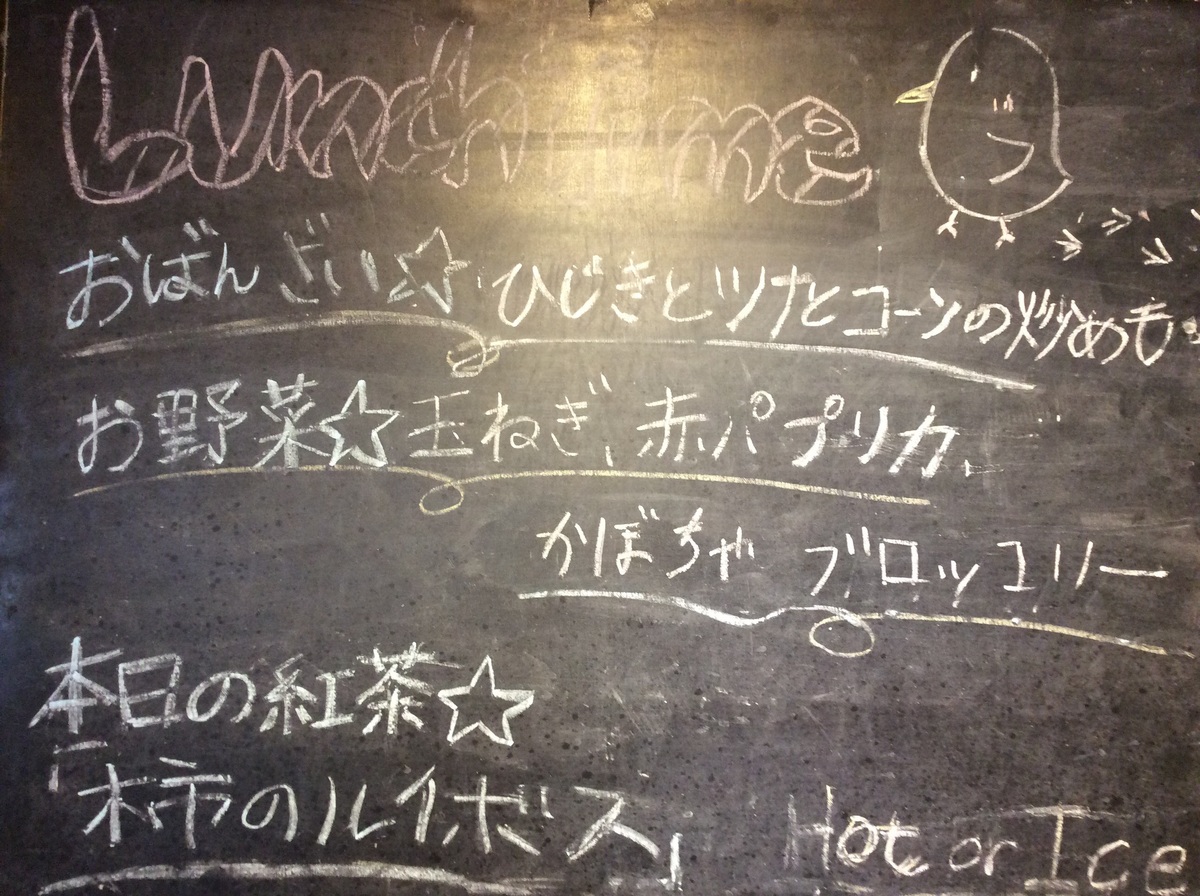 Lunch time
おばんざい☆ひじきとツナとコーンの炒めもの
お野菜☆玉ねぎ、赤パプリカ、
かぼちゃ ブロッコリー
本日の紅茶☆
「柿のルイボス」 Hot or Ice